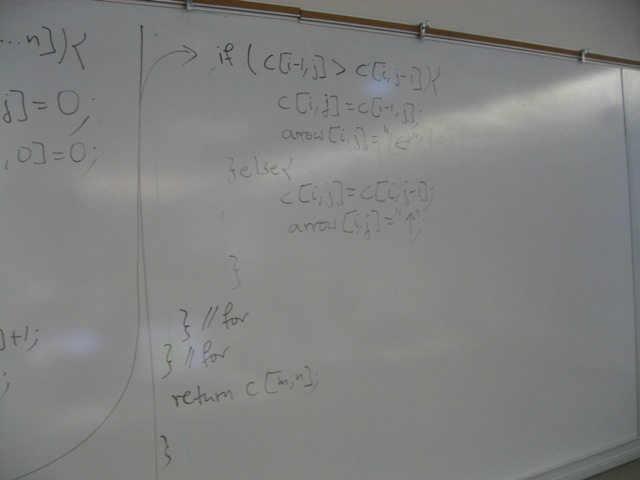 ...n]){
j]=0;
,0]=0;
]+1;
;
if (c[i-1,j]>c[i,j-1]){
c[i,j]=c[i-1,j];
arrow[i,j]="←";
}else{
c[i,j]=c[i,j-1];
arrow[i,j]="↑";
}
} //for
} //for
return c[m,n];
}